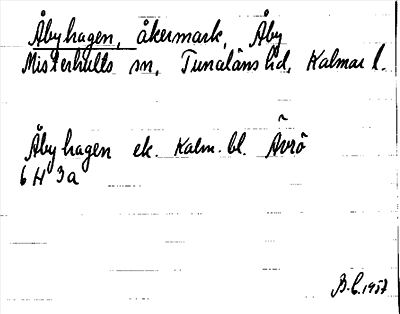 Åbyhagen, åkermark, Åby
Misterhults sn, Tunaläns hd, Kalmar l.
Åbyhagen ek. Kalm. bl. Ävrö
6 H 3a
B.C. 1957